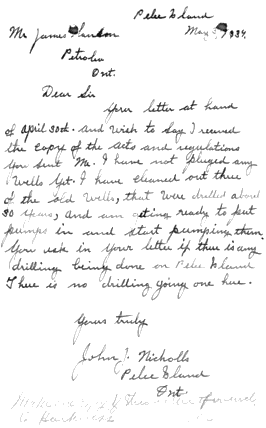 Pelee Island
Mr James
May 3, 1934
Petrolia
Ont.
Dear Sir
Your letter at hand
of april 30th. and wish to say I received
the copy of the acts and regulations
you sent me. I have not pluged any
wells yet. I have cleaned out three
of the old wells, that were drilled about
30 years, and am geting ready to put
pumps in and start pumping them.
You ask in your letter if there is any
drilling being done on Pelee Island
There is no drilling going one here.
Yours truly
John J. Nicholls
Pelee Island
Ont.